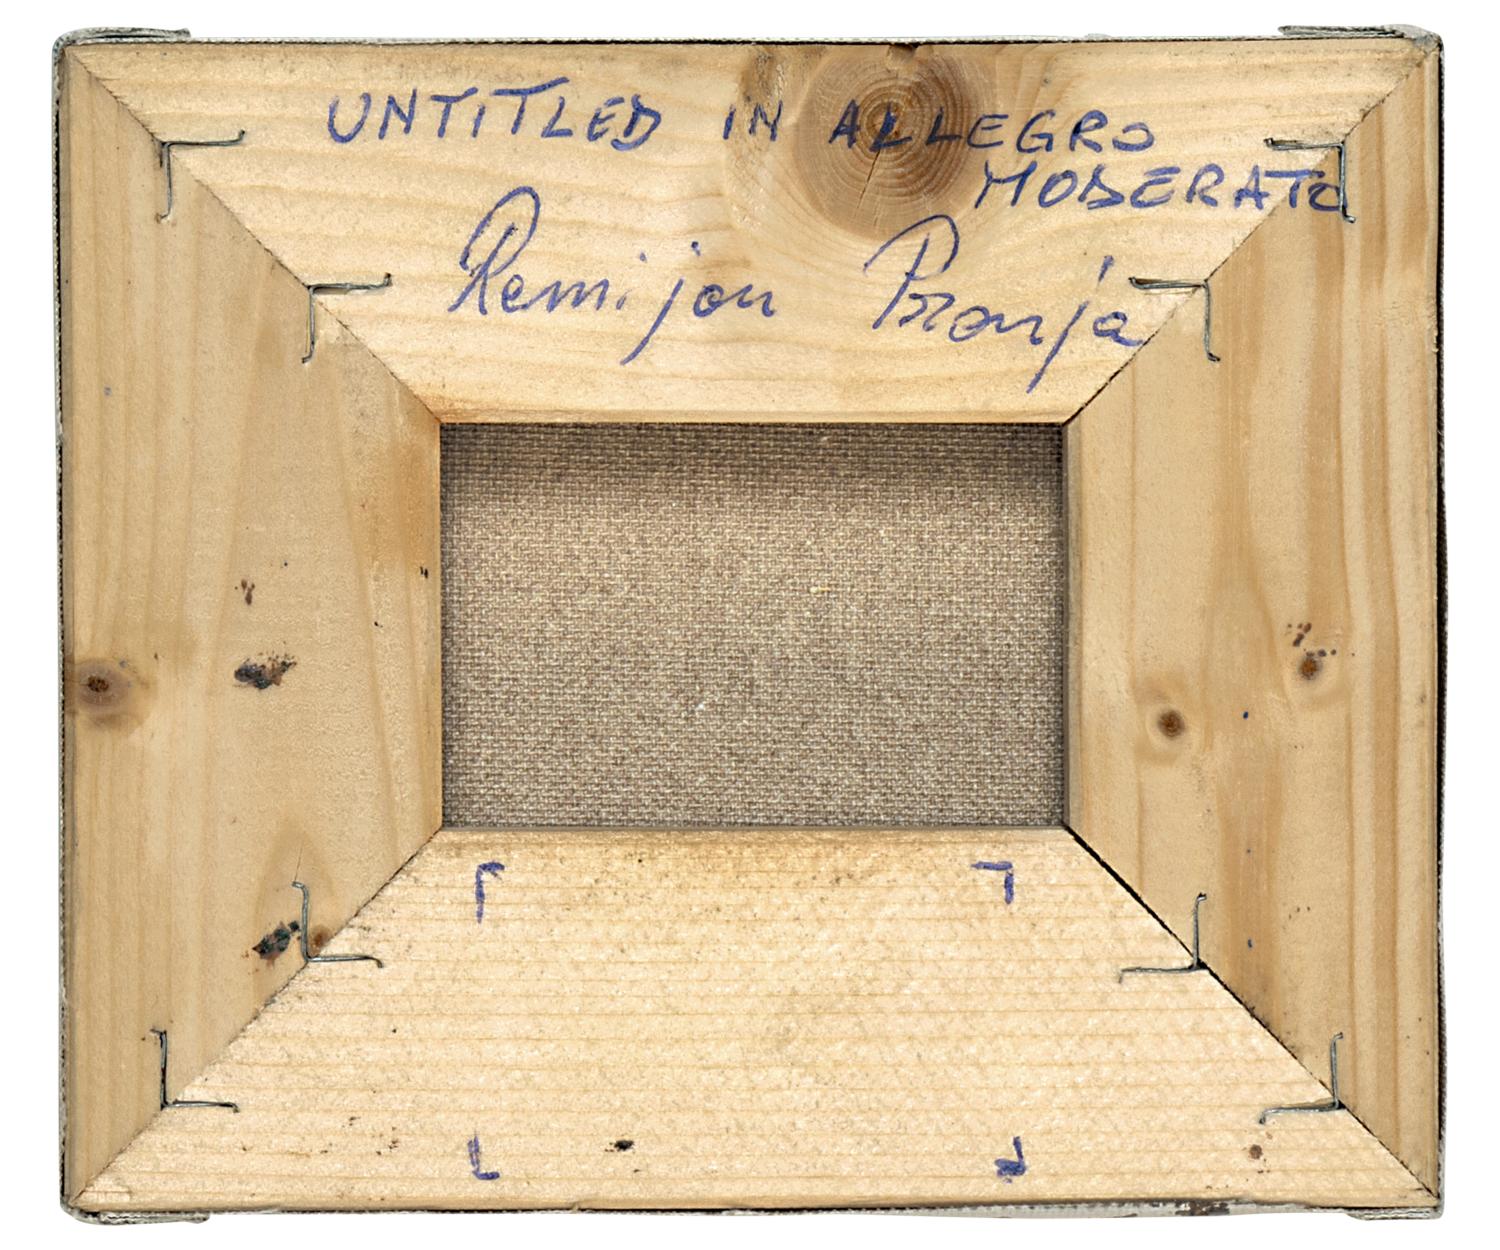 UNTITLED IN ALLEGRO
MODERATO
Remijon Pronja